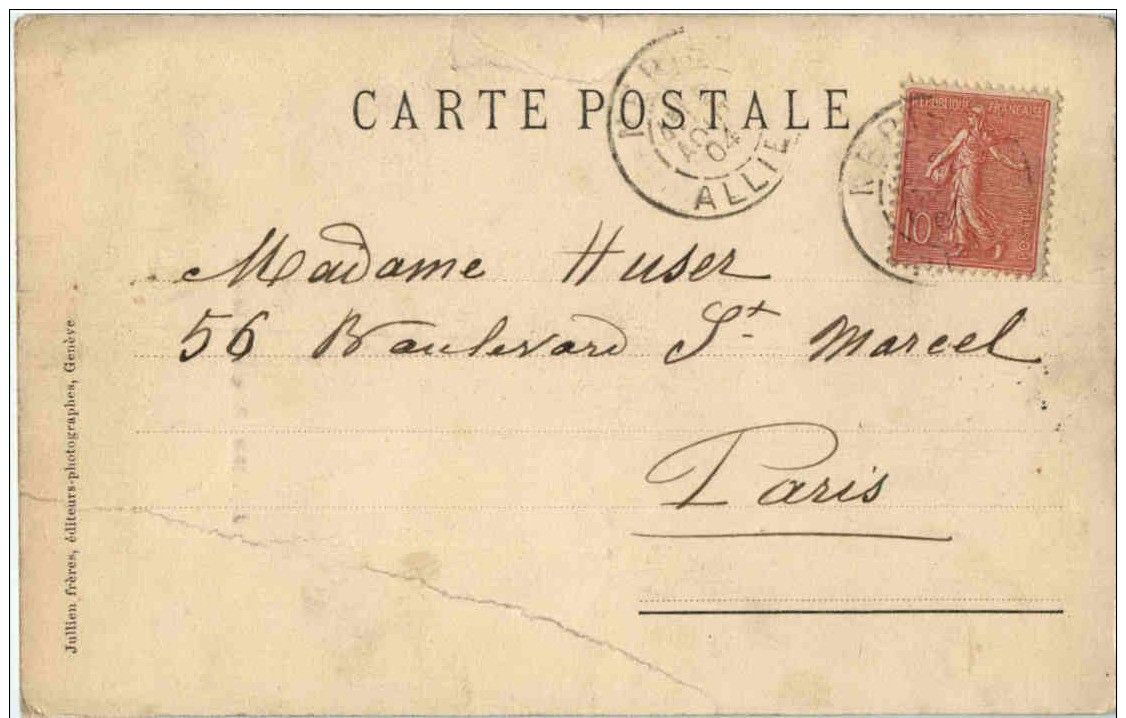 CARTE POSTALE
AOUT
04
ALLIE
RÉPUBLIQUE FRANÇAISE
10c
Madame Huser
56 Boulevard St Marcel
Paris
Jullien frères, éditeurs-photographes, Genève